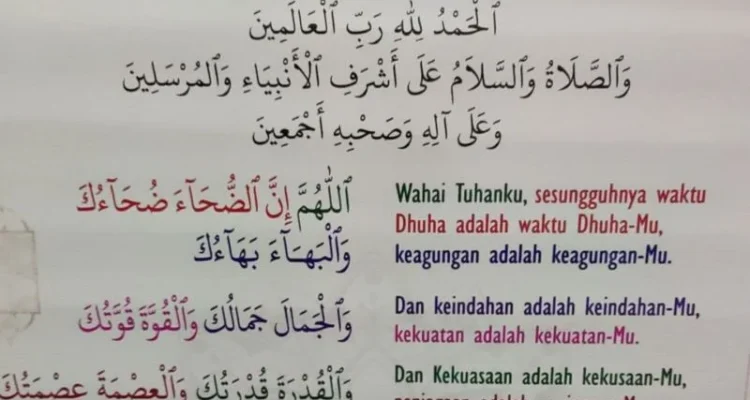 ٱلْحَمْدُ لِلّٰهِ رَبِّ ٱلْعَالَمِينَ
وَٱلصَّلَاةُ وَٱلسَّلَامُ عَلَى أَشْرَفِ ٱلْأَنْبِيَاءِ وَٱلْمُرْسَلِينَ
وَعَلَى آلِهِ وَصَحْبِهِ أَجْمَعِينَ
ٱللّٰهُمَّ إِنَّ ٱلضُّحَآءَ ضُحَآءُكَ
وَٱلْبَهَآءَ بَهَآءُكَ
Wahai Tuhanku, sesungguhnya waktu
Dhuha adalah waktu Dhuha-Mu,
keagungan adalah keagungan-Mu.
وَٱلْجَمَالَ جَمَالُكَ وَٱلْقُوَّةَ قُوَّتُكَ
Dan keindahan adalah keindahan-Mu,
kekuatan adalah kekuatan-Mu.
وَٱلْقُدْرَةَ قُدْرَتُكَ وَٱلْعِصْمَةَ عِصْمَتُكَ
Dan Kekuasaan adalah kekusaan-Mu,